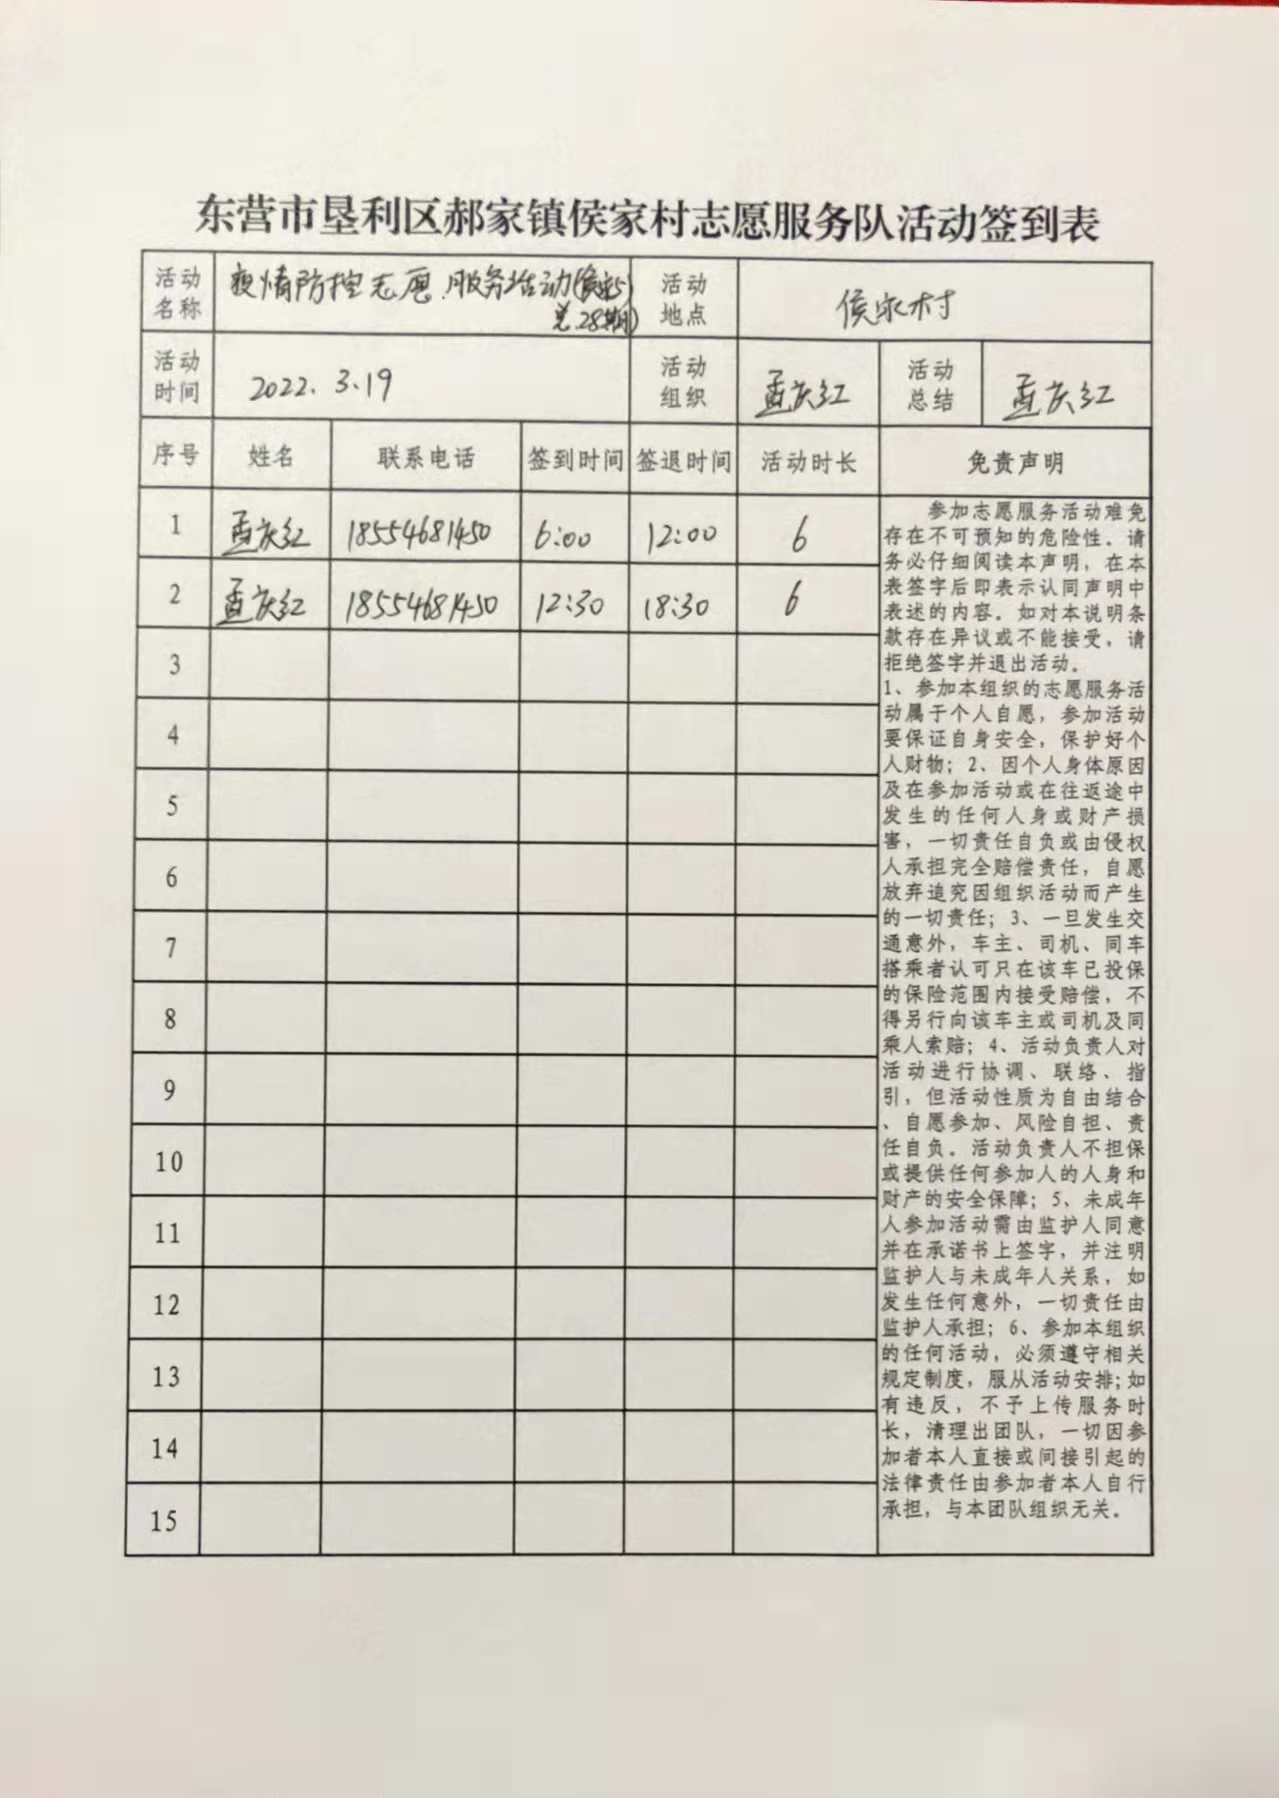 东营市垦利区郝家镇侯家村志愿服务队活动签到表
活动名称 疫情防控志愿服务活动(侯家 总28期) 活动地点 侯家村
活动时间 2022.3.19 活动组织 孟庆红 活动总结 孟庆红
序号 姓名 联系电话 签到时间 签退时间 活动时长 免责声明
1 孟庆红 18554681450 6:00 12:00 6
2 孟庆红 18554681450 12:30 18:30 6
3
4
5
6
7
8
9
10
11
12
13
14
15
参加志愿服务活动难免
存在不可预知的危险性。请
务必仔细阅读本声明，在本
表签字后即表示认同声明中
表述的内容。如对本说明条
款存在异议或不能接受，请
拒绝签字并退出活动。
1、参加本组织的志愿服务活
动属于个人自愿，参加活动
要保证自身安全，保护好个
人财物；2、因个人身体原因
及在参加活动或在往返途中
发生的任何人身或财产损
害，一切责任自负或由侵权
人承担完全赔偿责任，自愿
放弃追究因组织活动而产生
的一切责任；3、一旦发生交
通意外，车主、司机、同车
搭乘者认可只在该车已投保
的保险范围内接受赔偿，不
得另行向该车主或司机及同
乘人索赔；4、活动负责人对
活动进行协调、联络、指
引，但活动性质为自由结合
、自愿参加、风险自担、责
任自负。活动负责人不担保
或提供任何参加人的人身和
财产的安全保障；5、未成年
人参加活动需由监护人同意
并在承诺书上签字，并注明
监护人与未成年人关系，如
发生任何意外，一切责任由
监护人承担；6、参加本组织
的任何活动，必须遵守相关
规定制度，服从活动安排；如
有违反，不予上传服务时
长，清理出团队，一切因参
加者本人直接或间接引起的
法律责任由参加者本人自行
承担，与本团队组织无关。